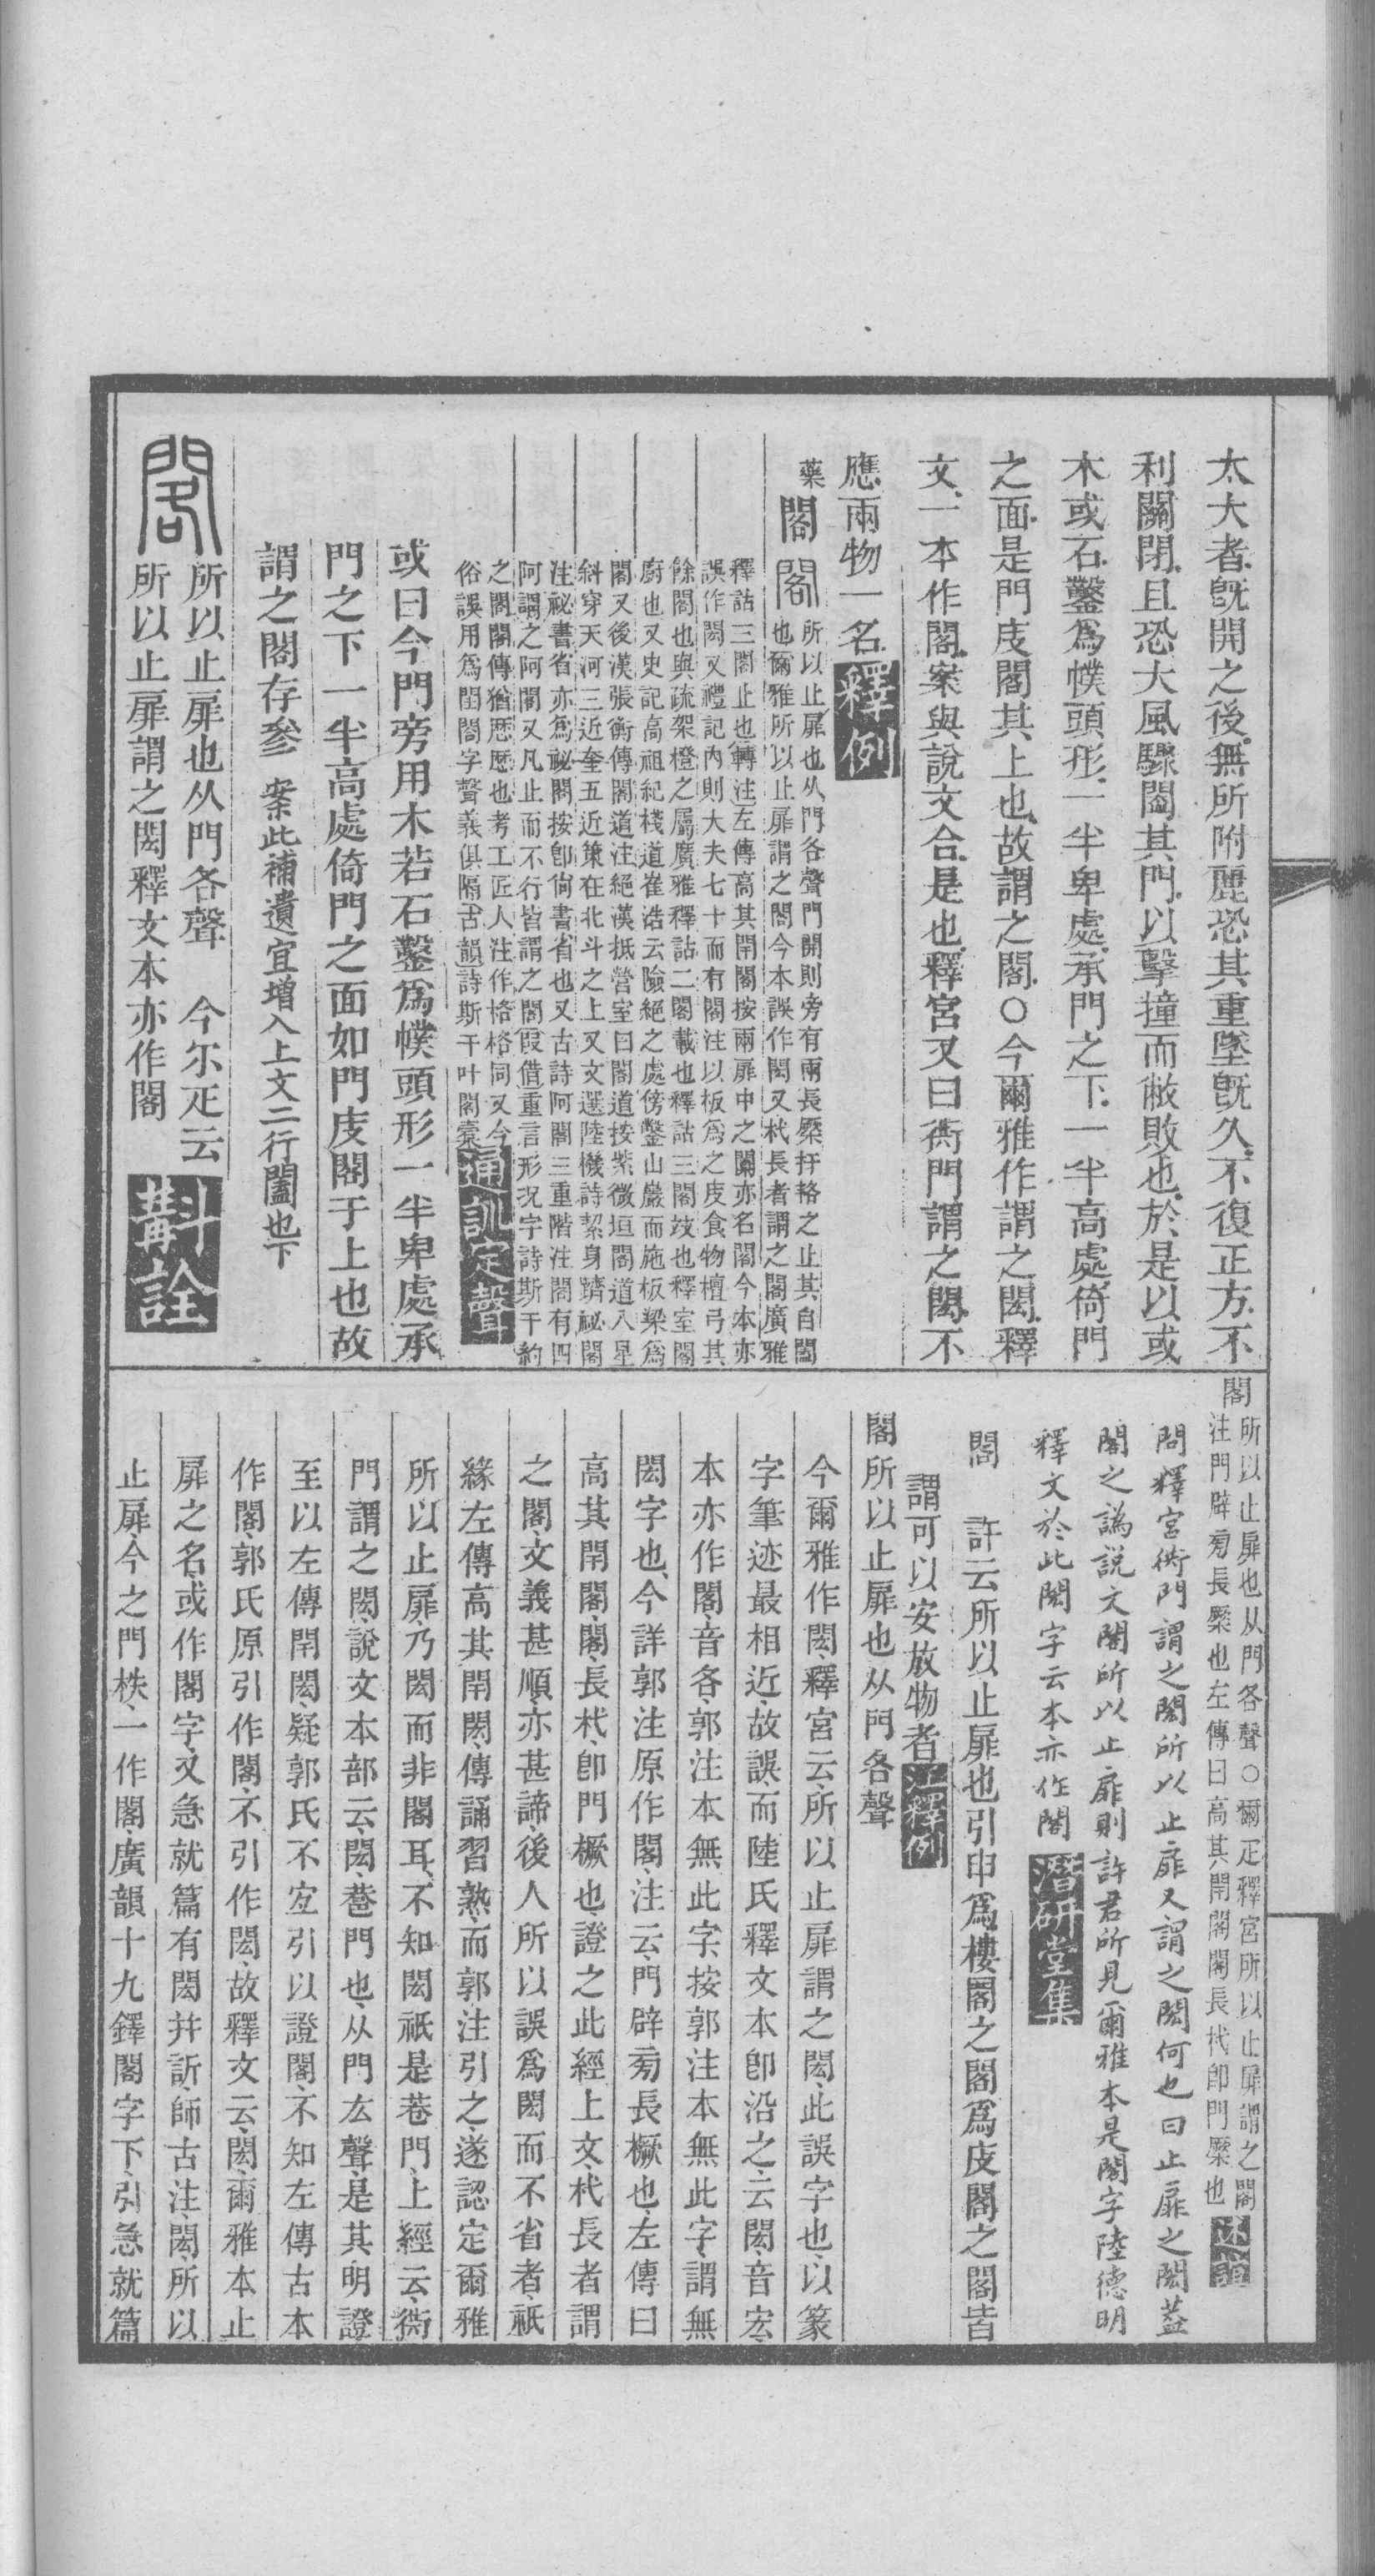 太大者、旣開之後、無所附麗、恐其重墜旣久、不復正方、不
利關閉、且恐大風驟闔其門、以擊撞而敝敗也、於是以或
木或石、鑿爲幞頭形、一半卑處、承門之下、一半高處、倚門
之面、是門庋閣其上也、故謂之閣、〇今爾雅作謂之閎、釋
文、一本作閣、案與說文合、是也、釋宮又曰衖門謂之閎、不
應兩物一名、釋例
藥閣 閣 所以止扉也从門各聲門開則旁有兩長橜扞格之止其自闔
也爾雅所以止扉謂之閣今本誤作閎又杙長者謂之閣廣雅
釋詁三閣止也轉注左傳高其閈閣按兩扉中之闑亦名閣今本亦
誤作閎又禮記內則大夫七十而有閣注以板爲之庋食物檀弓其
餘閣也與疏架橙之屬廣雅釋詁二閣載也釋詁三閣攱也釋室閣
廚也又史記高祖紀棧道崔浩云險絕之處傍鑿山巖而施板梁爲
閣又後漢張衡傳閣道注絕漢抵營室曰閣道按紫微垣閣道八星
斜穿天河三近奎五近策在北斗之上又文選陸機詩絜身躋祕閣
注祕書省亦爲祕閣按卽尙書省也又古詩阿閣三重階注閣有四
阿謂之阿閣又凡止而不行皆謂之閣叚借重言形況字詩斯干約
之閣閣傳猶歷歷也考工匠人注作格格同又今
俗誤用爲閨閤字聲義俱隔古韻詩斯干叶閣橐通訓定聲
或曰今門旁用木若石鑿爲幞頭形一半卑處承
門之下一半高處倚門之面如門庋閣于上也故
謂之閣存參 案此補遺宜增入上文二行闔也下
閣 所以止扉也从門各聲 今尒疋云
所以止扉謂之閎釋文本亦作閣 斠詮
閣 所以止扉也从門各聲〇爾疋釋宮所以止扉謂之閣
注門辟旁長橜也左傳曰高其閈閣閣長杙卽門橜也 述誼
問釋宮衖門謂之閎所以止扉又謂之閎何也曰止扉之閎蓋
閣之譌說文閣所以止扉則許君所見爾雅本是閣字陸德明
釋文於此閎字云本亦作閣 潛研堂集
閣 許云所以止扉也引申爲樓閣之閣爲庋閣之閣皆
謂可以安放物者 江釋例
閣所以止扉也从門各聲
今爾雅作閎、釋宮云、所以止扉謂之閎、此誤字也、以篆
字筆迹最相近、故誤、而陸氏釋文本卽沿之、云閎、音宏、
本亦作閣、音各、郭注本無此字、按郭注本無此字、謂無
閎字也、今詳郭注原作閣、注云、門辟旁長橛也、左傳曰
高其閈閣、閣、長杙、卽門橛也、證之此經上文、杙長者謂
之閣、文義甚順、亦甚諦、後人所以誤爲閎而不省者、祇
緣左傳高其閈閎、傳誦習熟、而郭注引之、遂認定爾雅
所以止扉、乃閎而非閣耳、不知閎祇是巷門、上經云、衖
門謂之閎、說文本部云、閎、巷門也、从門厷聲、是其明證
至以左傳閈閎、疑郭氏不宐引以證閣、不知左傳古本
作閣、郭氏原引作閣、不引作閎、故釋文云、閎、爾雅本止
扉之名、或作閣字、又急就篇有閎幷訢、師古注、閎、所以
止扉、今之門柣、一作閣、廣韻十九鐸閣字下、引急就篇